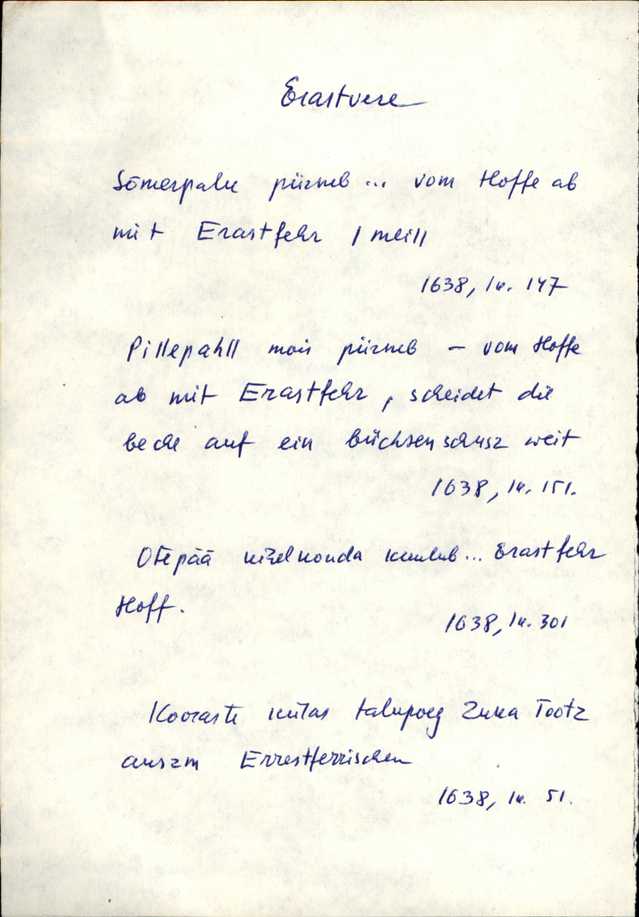 Erastvere
Sõmerpalu piirneb ... vom Hoffe ab
mit Erastfehr 1 meill
1638, lk. 147
Pillepahll mois piirneb – vom Hoffe
ab mit Erastfehr, scheidet die
beche auf ein büchsenschusz weit
1638, lk. 151.
Otepää kihelkonda kuulub ... Erastfehr
Hoff.
1638, lk. 301
Kooraste külas talupoeg Tootz
auszm Errestferrischen
1638, lk. 51.